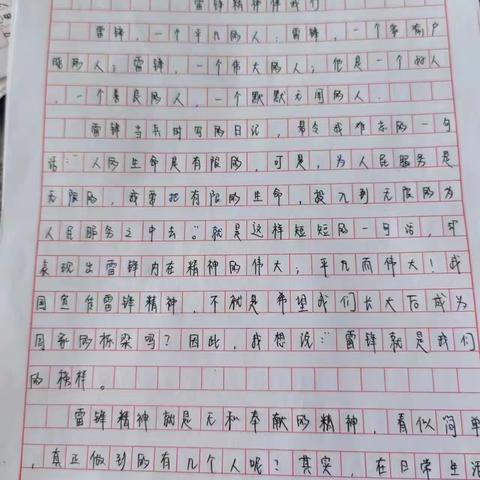 雷锋精神伴我行
雷锋，一个平凡的人；雷锋，一个家喻户
晓的人；雷锋，一个伟大的人；他是一个好人
，一个善良的人，一个默默无闻的人。
雷锋当兵时写的日记，最令我难忘的一句
话："人的生命是有限的，可是，为人民服务是
无限的，我要把有限的生命，投入到无限的为
人民服务之中去。"就是这样短短的一句话，却
表现出雷锋内在精神的伟大；平凡而伟大！我
国宣传雷锋精神，不就是希望我们长大后成为
国家的栋梁吗？因此，我想说："雷锋就是我们
的榜样。
雷锋精神就是无私奉献的精神，看似简单
，真正做到的有几个人呢？其实，在日常生活